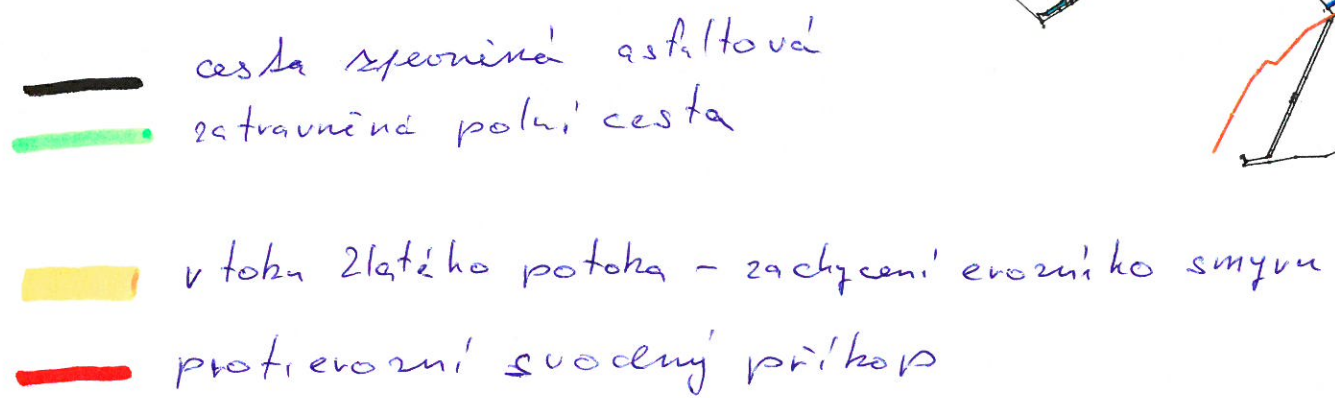 cesta zpevněná asfaltová
zatravněná polní cesta
v toku Zlatého potoka - zachycení erozního smyvu
protierozní svodný příkop